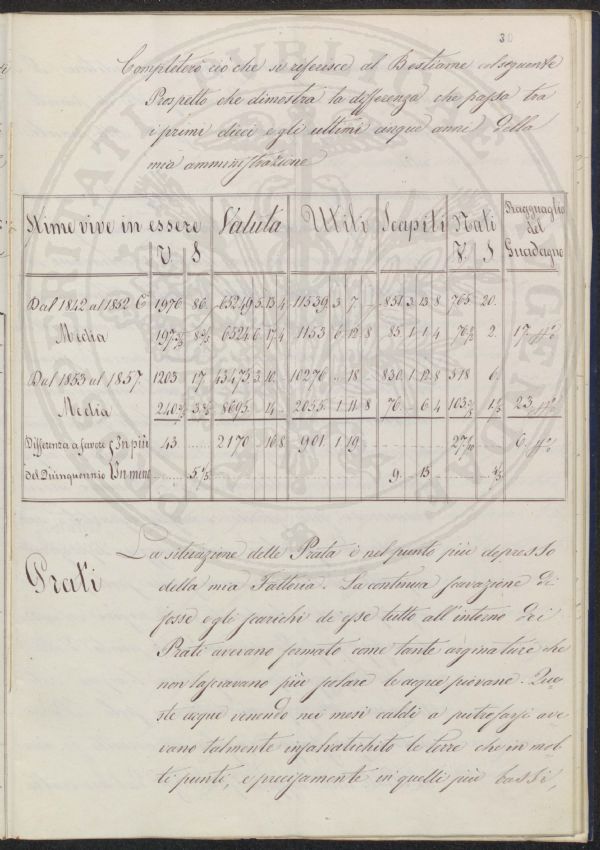 30
Completerò ciò che si referisce al Bestiame col seguente
Prospetto che dimostra la differenza che passa tra
i primi dieci e gli ultimi cinque anni della
mia amministrazione
Nime vive in essere Valuta Utili Scapiti Nati Ragguaglio
V. S V. S del
Guadagno
Dal 1842 al 1852 1976 86 65249 3 13 4 11539 3 7 851 3 13 8 765 20
Media 6524 6 17 4 1153 6 12 8 85 1 1 4 2. 17
Dal 1853 al 1857. 1203 17 43475 3 10 10276 18 830 1 12 8 518 6
Media 8695 14 2055 1 11 8 76 6 4 23
Differenza a favore In più 43 2170 16 8 901 1 19 6
del Quinquennio In meno 9 13
Prati
La situazione delle Prata è nel punto più depresso
della mia Fattoria. La continua scavazione di
fosse e gli scarichi di esse tutto all'intorno dei
Prati avevano formato come tante arginature che
non lasciavano più scolare le acque piovane. Que=
ste acque venendo nei mesi caldi a putrefarsi ave
vano talmente insalvatichito le terre che in mol
ti punti, e precisamente in quelli più bassi,